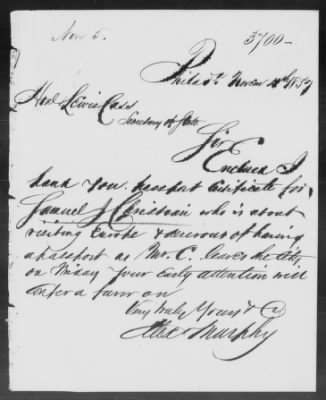 Nov 5. 3700-
Philada Novem 4th 1857
Honl Lewis Cass
Secretary of State
Sir
Enclosed I
hand you passport Certificate for
Samuel J Christian who is about
visiting Europe & desirous of having
a passport as Mr. C. leaves the City
on Friday your early attention will
confer a favor on
Very truly Yours &c
Murphy